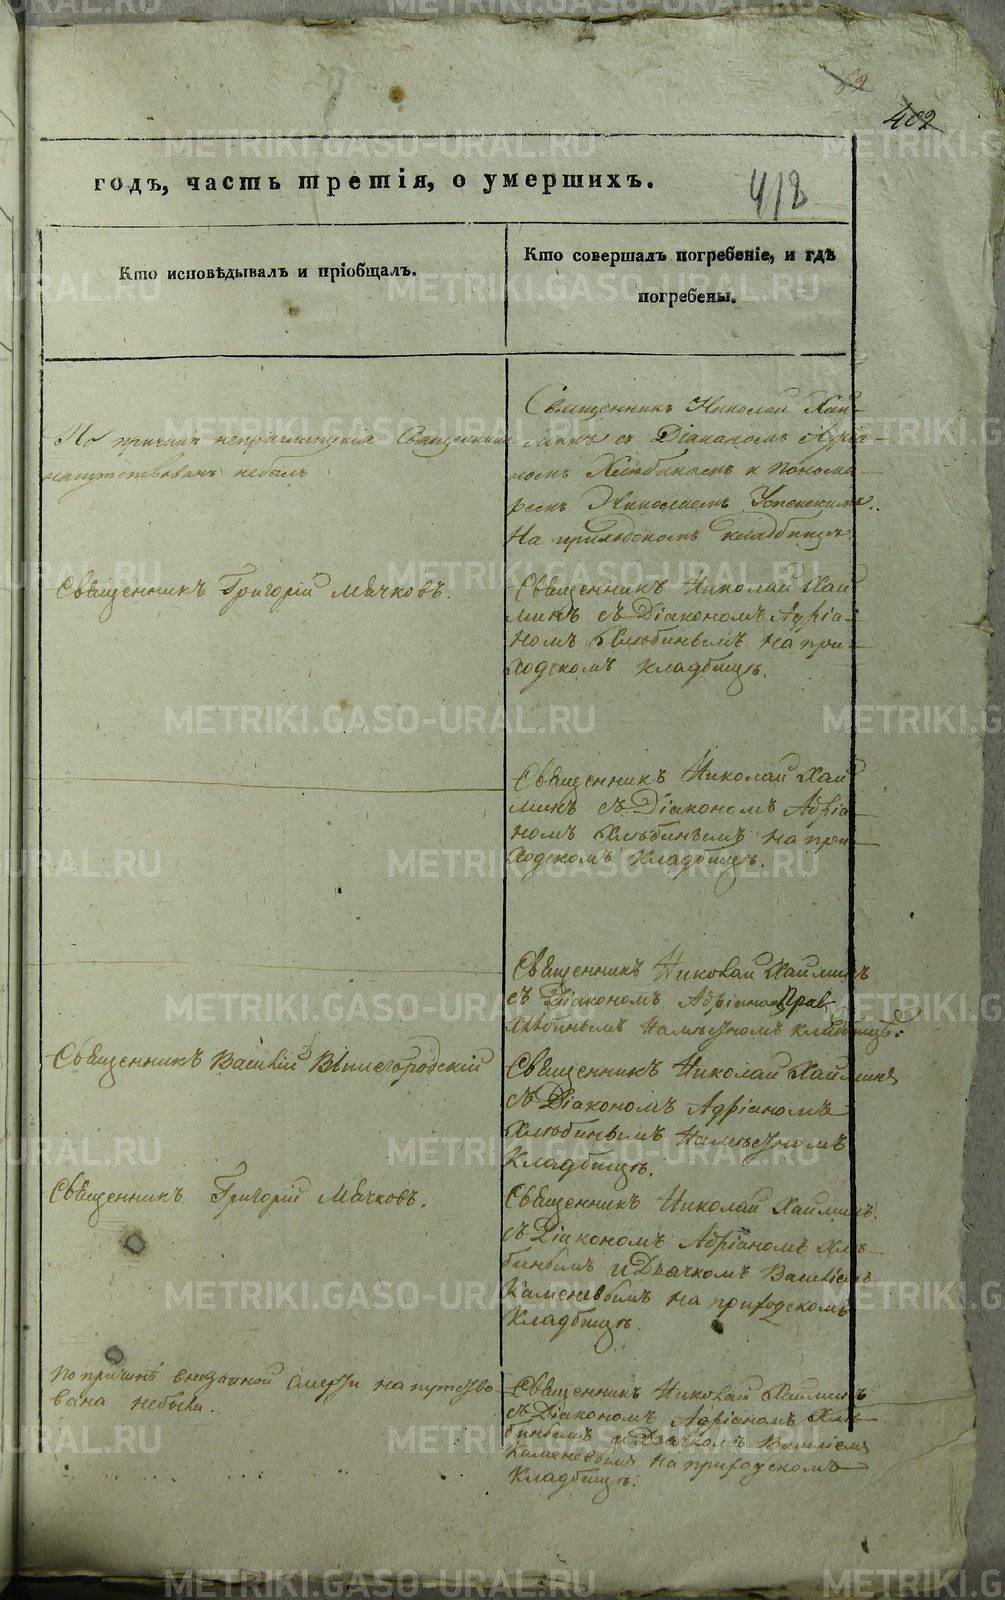 62
402
годъ, часть третія, о умершихъ.
412
Кто исповѣдывалъ и пріобщалъ.
Кто совершалъ погребеніе, и гдѣ
погребены.
По причинѣ неприглашенія Священника
напутствованъ небылъ
Священникъ Николай Хай-
минъ съ Діакономъ Адріа-
номъ Хлюбинымъ и Понома-
ремъ Николаемъ Успенскимъ.
На приходскомъ кладбищѣ
Священникъ Григорій Мячковъ.
Священникъ Николай Хай
минъ съ Діакономъ Адріа-
номъ Хлюбинымъ на при-
ходскомъ кладбищѣ.
Священникъ Николай Хай
минъ съ Діакономъ Адріа-
номъ Хлюбинымъ на при-
ходскомъ кладбищѣ.
Священникъ Николай Хайминъ
съ Діакономъ Адріаном
Хлюбинымъ кладбищѣ.
Священникъ Василій Вышегородскій
Священникъ Николай Хайминъ
съ Діакономъ Адріаномъ
Хлюбинымъ
кладбищѣ.
Священникъ Григорій Мячковъ.
Священникъ Николай Хайминъ.
съ Діакономъ Адріаномъ Хлю-
бинымъ и Дьячкомъ Василіемъ
Каменевымъ на приходскомъ
кладбищѣ.
По причинѣ внезапной смерти напутство
вана небыла.
Священникъ Николай Хайминъ
съ Діакономъ Адріаномъ Хлю-
бинымъ и Дьячкомъ Василіемъ
Каменевымъ на приходскомъ
кладбищѣ.
METRIKI.GASO-URAL.RU